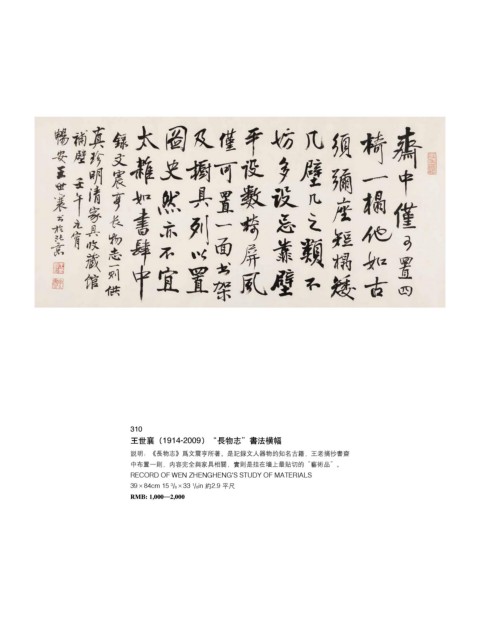 齋中僅可置四
椅一榻他如古
須彌座短榻矮
几壁几之類不
妨多設忌靠壁
平設數椅屏風
僅可置一面书架
及櫥具列以置
圖史然亦不宜
太雜如書肆中
錄文震亨長物志一則供
真珍明清家具收藏館
補壁 壬午元宵
暢安王世襄書於北京
310
王世襄（1914-2009）“長物志”書法橫幅
説明：《長物志》爲文震亨所著，是記録文人器物的知名古籍，王老摘抄書齋
中布置一則，内容完全與家具相關，實則是挂在墻上最貼切的“藝術品”。
RECORD OF WEN ZHENGHENG'S STUDY OF MATERIALS
39 × 84cm 15 ³/₈ × 33 ¹/₈in 約2.9 平尺
RMB: 1,000—2,000